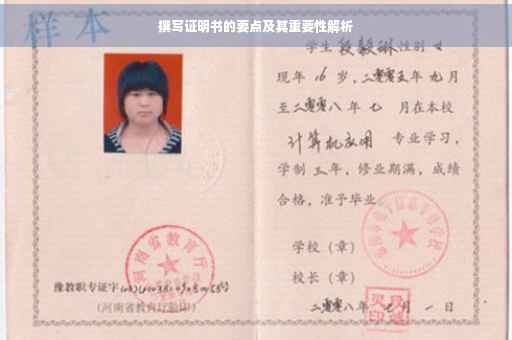 撰写证明书的要点及其重要性解析
样本
学生段毅琳性别女
现年16岁，二零零五年九月
至二零零八年七月在本校
计算机应用专业学习，
学制三年，修业期满，成绩
合格，准予毕业。
学校（章）
校长（章）
二零零八年七月一日
河南省教育厅
豫教职专证字
（河南省教育厅验印）